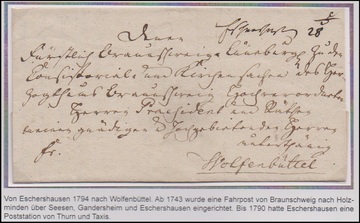 Denen
Eschershausen
28
Fürstlich Braunschweig Lüneburg. zu den
Consistorial und Kirchensachen des Her-
zogthums Braunschweig Hochverordneten
Herren Præsident und Räthen
meinen gnädigen und Hochgebietenden Herren
fr. unterthänig
Wolfenbüttel
Von Eschershausen 1794 nach Wolfenbüttel. Ab 1743 wurde eine Fahrpost von Braunschweig nach Holz-
minden über Seesen, Gandersheim und Eschershausen eingerichtet. Bis 1790 hatte Eschershausen eine
Poststation von Thurn und Taxis.